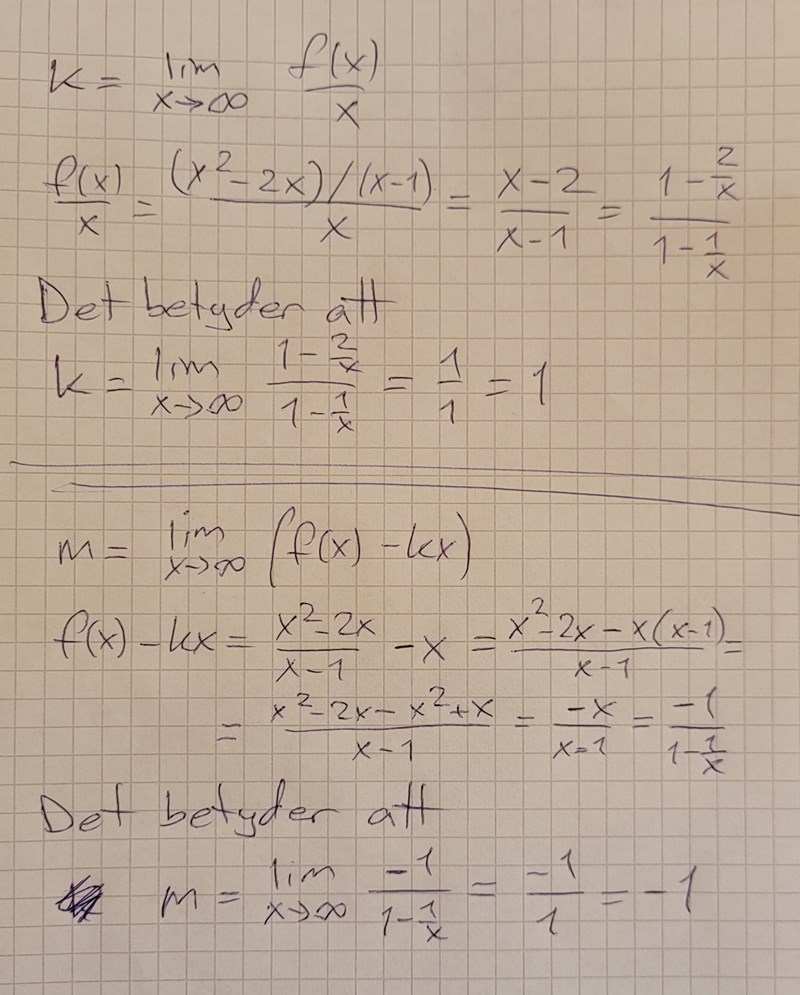 k = lim x→∞ f(x)/x
f(x)/x = (x² - 2x)/(x-1)/x = x-2/x-1 = 1-2/x/1-1/x
Det betyder att
k = lim x→∞ 1-2/x/1-1/x = 1/1 = 1
m = lim x→∞ (f(x) - kx)
f(x) - kx = x²-2x/x-1 - x = x²-2x-x(x-1)/x-1 =
= x²-2x-x²+x/x-1 = -x/x-1 = -1/1-1/x
Det betyder att
m = lim x→∞ -1/1-1/x = -1/1 = -1